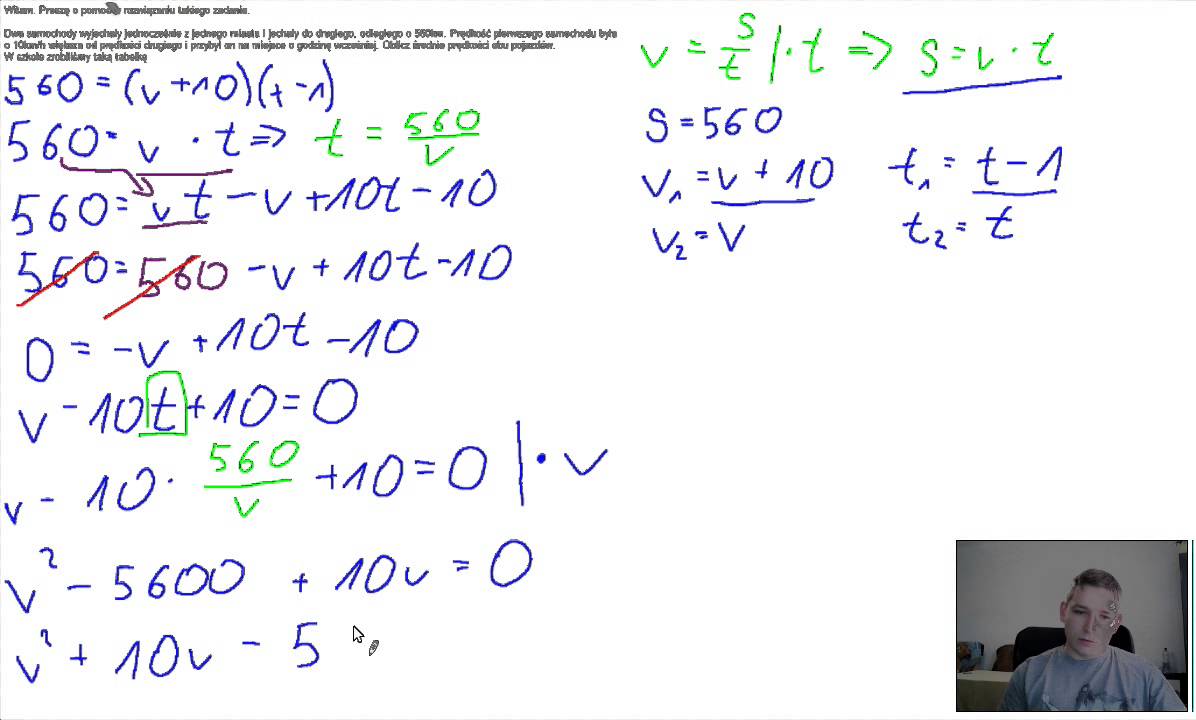 Witam. Proszę o pomoc w rozwiązaniu takiego zadania.
Dwa samochody wyjechały jednocześnie z jednego miasta i jechały do drugiego, odległego o 560km. Prędkość pierwszego samochodu była
o 10km/h większa od prędkości drugiego i przybył on na miejsce o godzinę wcześniej. Oblicz średnie prędkości obu pojazdów.
W szkole zrobiliśmy taką tabelkę
560 = (v + 10)(t - 1)
560 = v · t => t = 560/v
560 = v t - v + 10t - 10
560 = 560 - v + 10t - 10
0 = -v + 10t - 10
v - 10t + 10 = 0
v - 10 · 560/v + 10 = 0 | · v
v² - 5600 + 10v = 0
v² + 10v - 5
v = s/t | · t => s = v · t
s = 560
v₁ = v + 10 t₁ = t - 1
v₂ = v t₂ = t